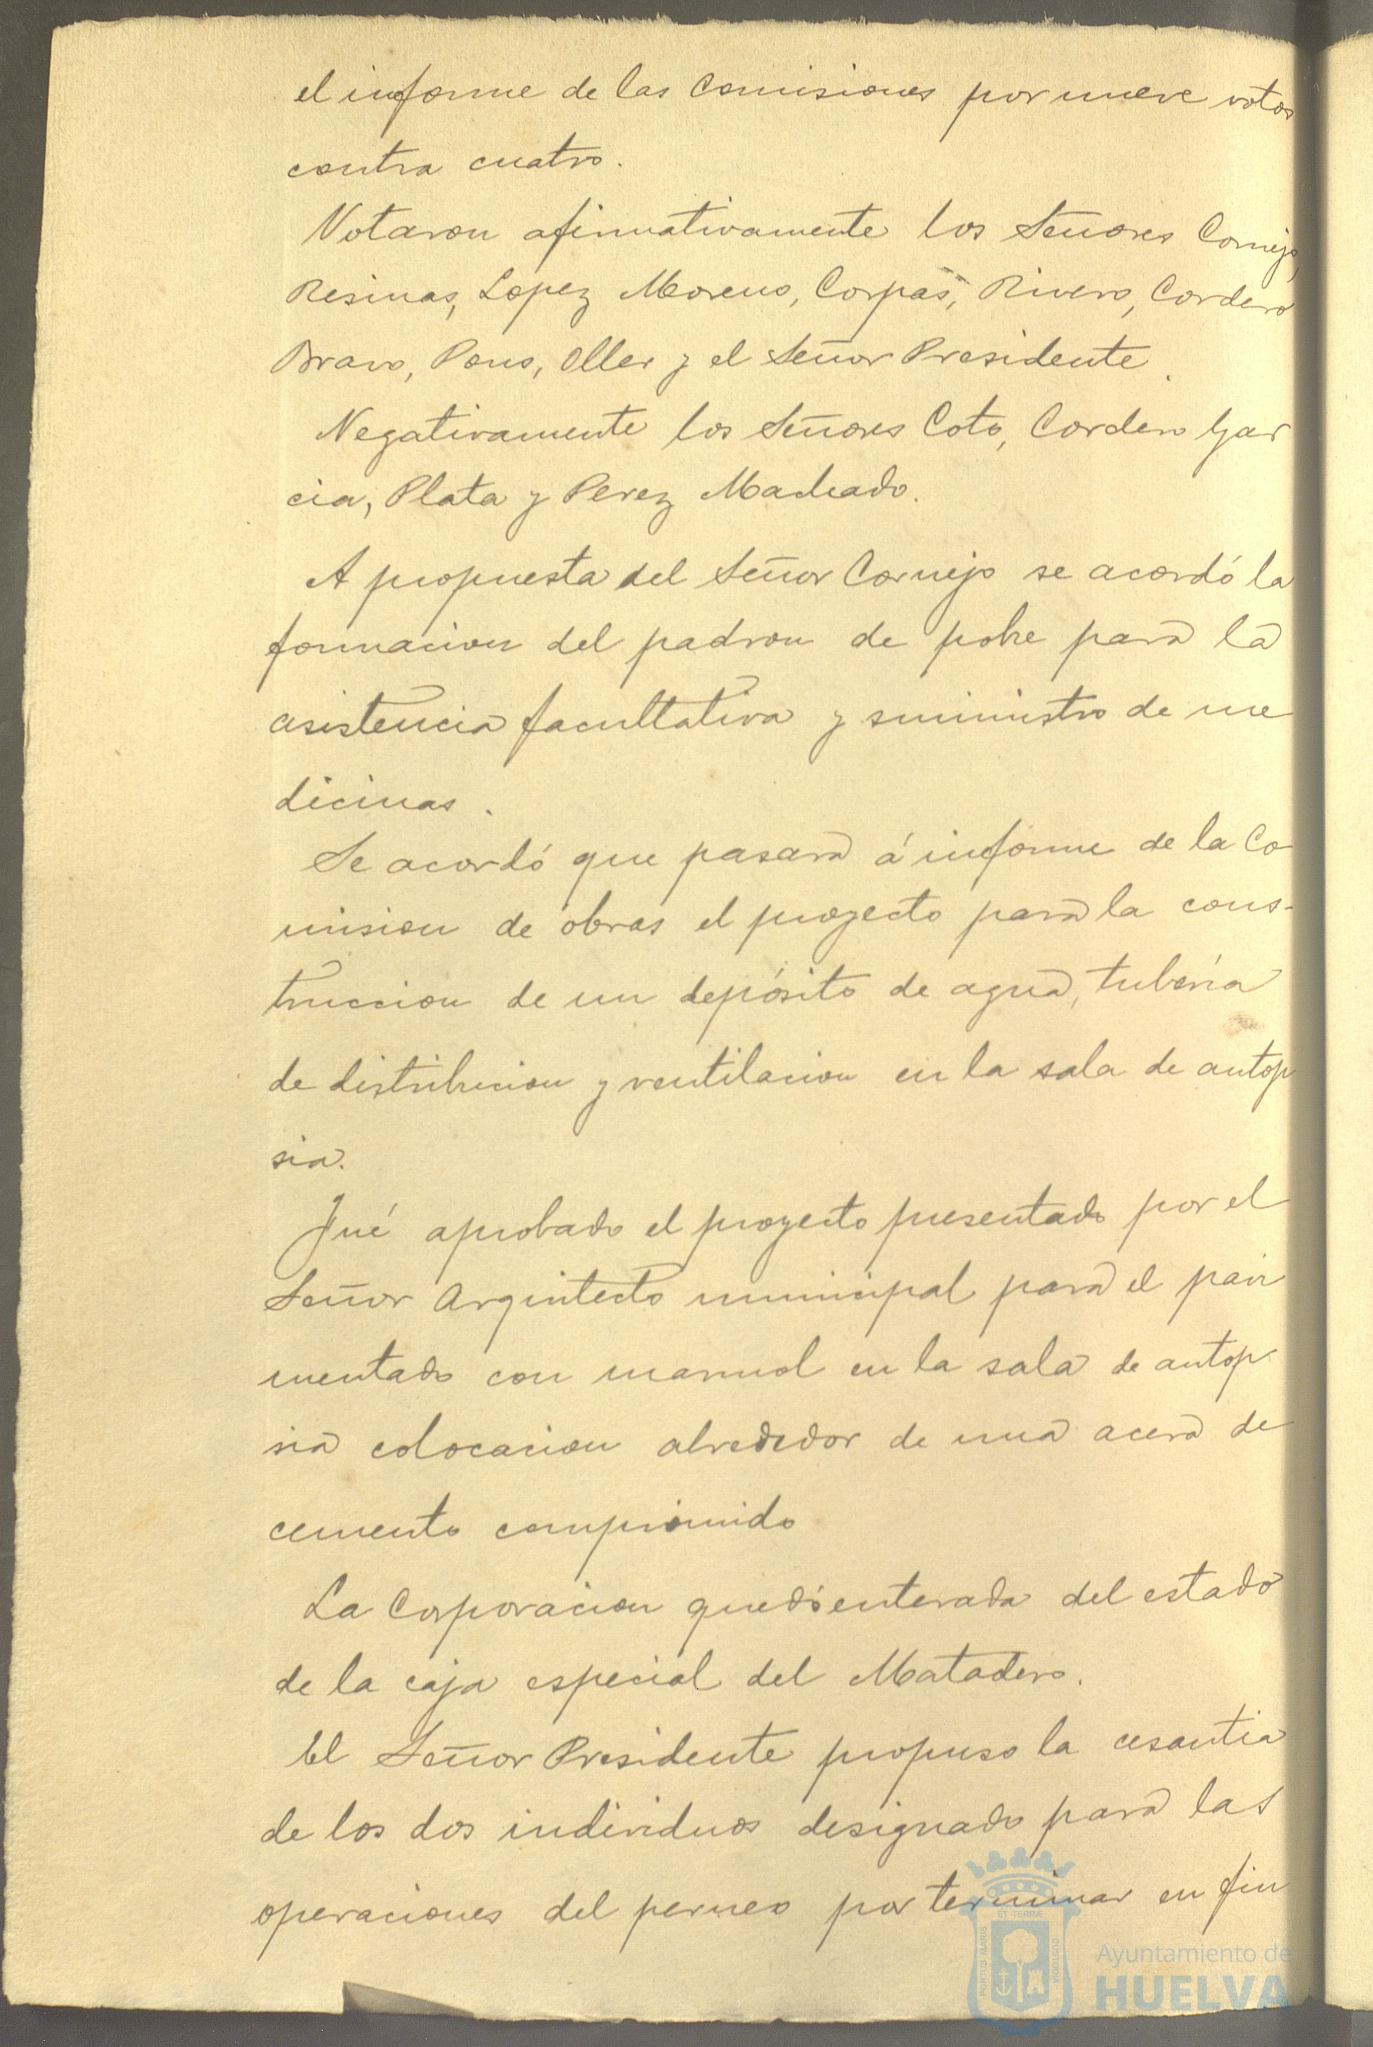 el informe de las Comisiones por nueve votos
contra cuatro.
Votaron afirmativamente los Señores Cornejo,
Resinas, Lopez Moreno, Corpas, Rivero, Cordero
Bravo, Pons, Oller y el Señor Presidente.
Negativamente los Señores Coto, Cordero Gar
cia, Plata y Perez Machado.
A propuesta del Señor Cornejo se acordó la
formacion del padron de pobre para la
asistencia facultativa y suministro de me
dicinas.
Se acordó que pasara á informe de la Co
mision de obras el proyecto para la cons-
truccion de un depósito de agua, tubería
de distribucion y ventilacion en la sala de autop
sia.
Fué aprobado el proyecto presentado por el
Señor Arquitecto municipal para el pavi
mentado con marmol en la sala de autop
sia colocacion alrededor de una acera de
cemento comprimido
La Corporacion quedó enterada del estado
de la caja especial del Matadero.
El Señor Presidente propuso la cesantia
de los dos individuos designado para las
operaciones del perneo por terminar en fin
PORTUS MARIS ET TERRÆ CUSTODIA
Ayuntamiento de
HUELVA